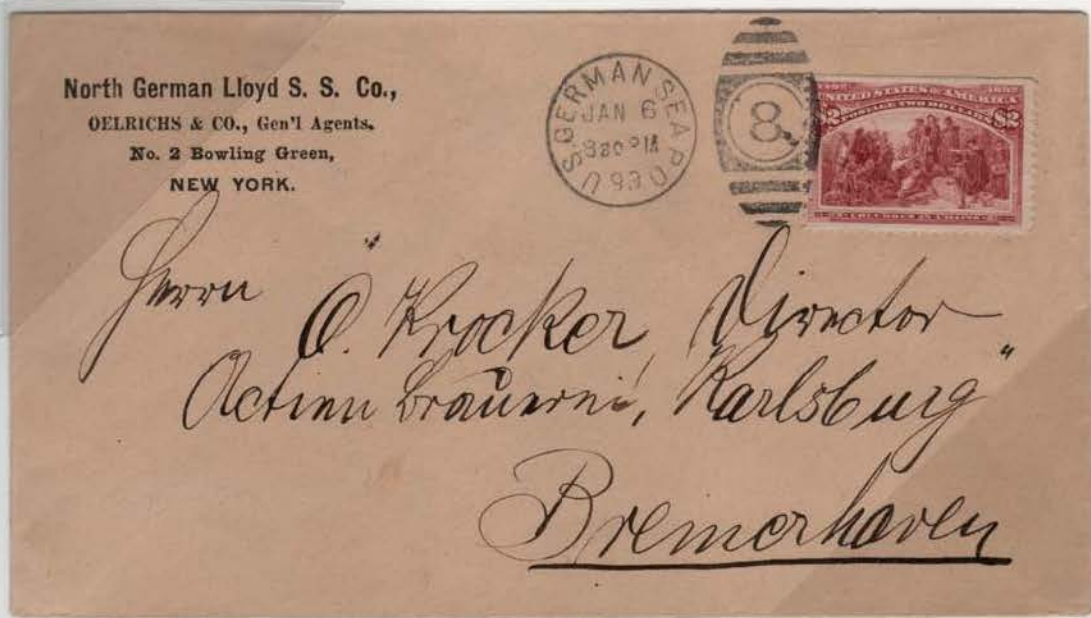 North German Lloyd S. S. Co.,
OELRICHS & CO., Gen'l Agents.
No. 2 Bowling Green,
NEW YORK.
U S GERMAN SEA PO
JAN 6
93
8
UNITED STATES OF AMERICA
POSTAGE TWO DOLLARS
$2 $2
COLUMBUS IN CHAINS
Herrn
O. Krocker, Director
Actien Brauerei, "Karlsburg"
Bremerhaven